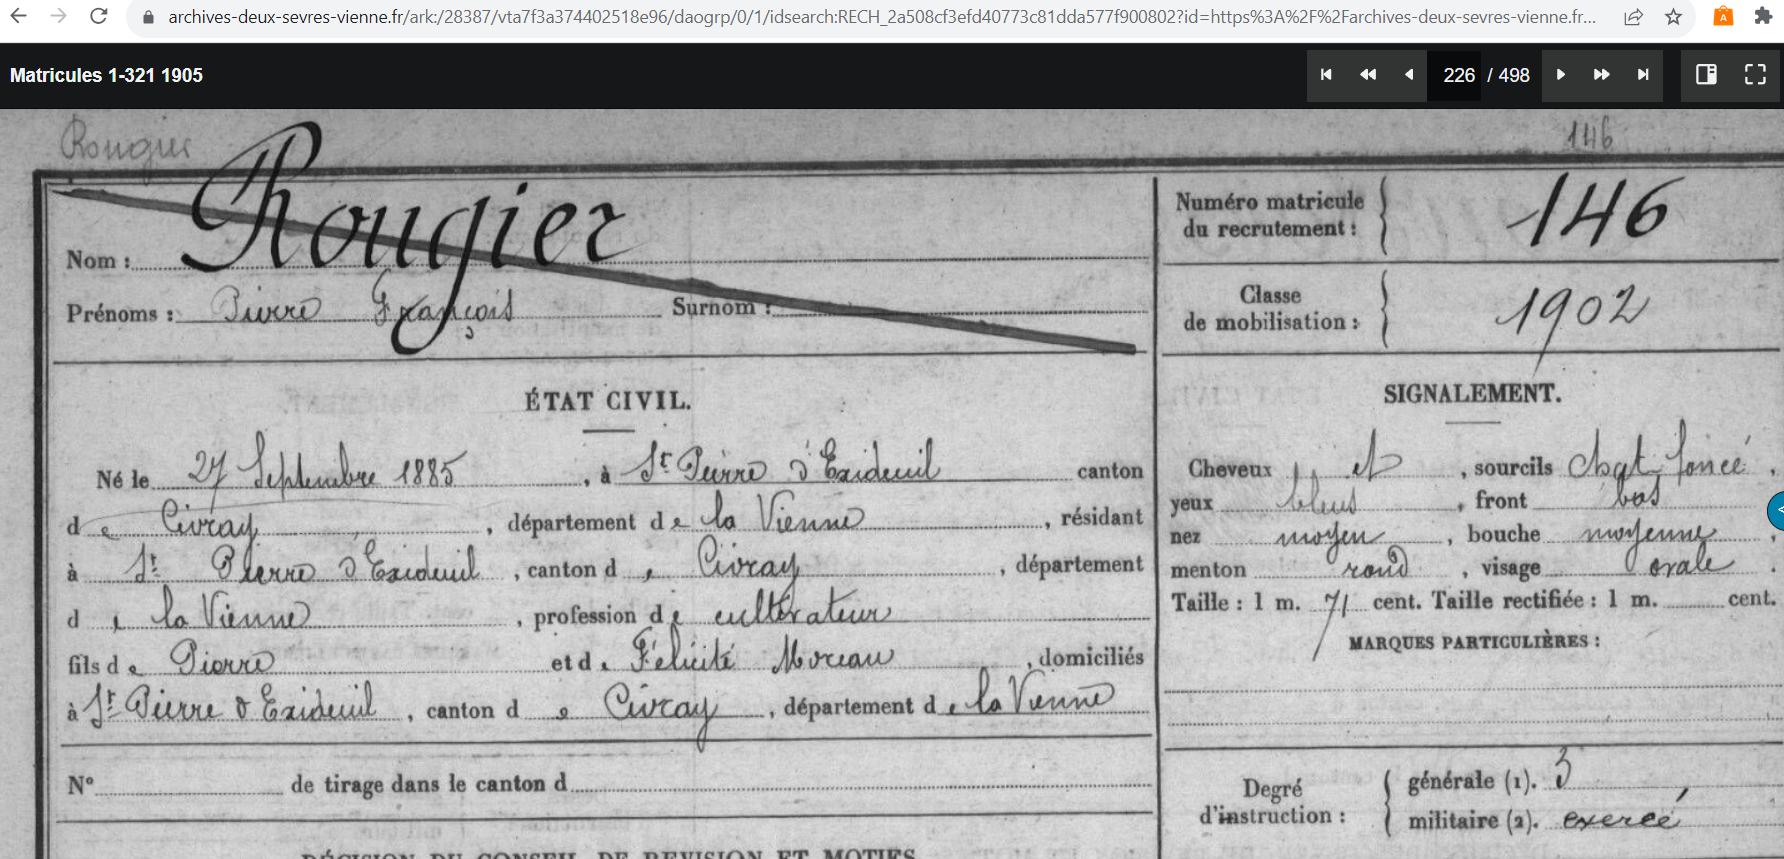 archives-deux-sevres-vienne.fr/ark:/28387/vta7f3a374402518e96/daogrp/0/1/idsearch:RECH_2a508cf3efd40773c81dda577f900802?id=https%3A%2F%2Farchives-deux-sevres-vienne.fr...
Matricules 1-321 1905
226 / 498
Rougier
146
Rougier
Nom :
Numéro matricule du recrutement : 146
Prénoms : Pierre François Surnom :
Classe de mobilisation : 1902
ÉTAT CIVIL.
Né le 27 Septembre 1885, à St Pierre d'Exideuil canton
de Civray, département de la Vienne, résidant
à St Pierre d'Exideuil, canton de Civray, département
de la Vienne, profession de cultivateur
fils de Pierre et de Félicité Moreau, domiciliés
à St Pierre d'Exideuil, canton de Civray, département de la Vienne
N° de tirage dans le canton d
DÉCISION DU CONSEIL DE REVISION ET MOTIFS
SIGNALEMENT.
Cheveux et, sourcils chat foncé,
yeux bleus, front bas
nez moyen, bouche moyenne,
menton rond, visage ovale.
Taille : 1 m. 71 cent. Taille rectifiée : 1 m. cent.
MARQUES PARTICULIÈRES :
Degré d'instruction :
générale (1). 3
militaire (2). exercé